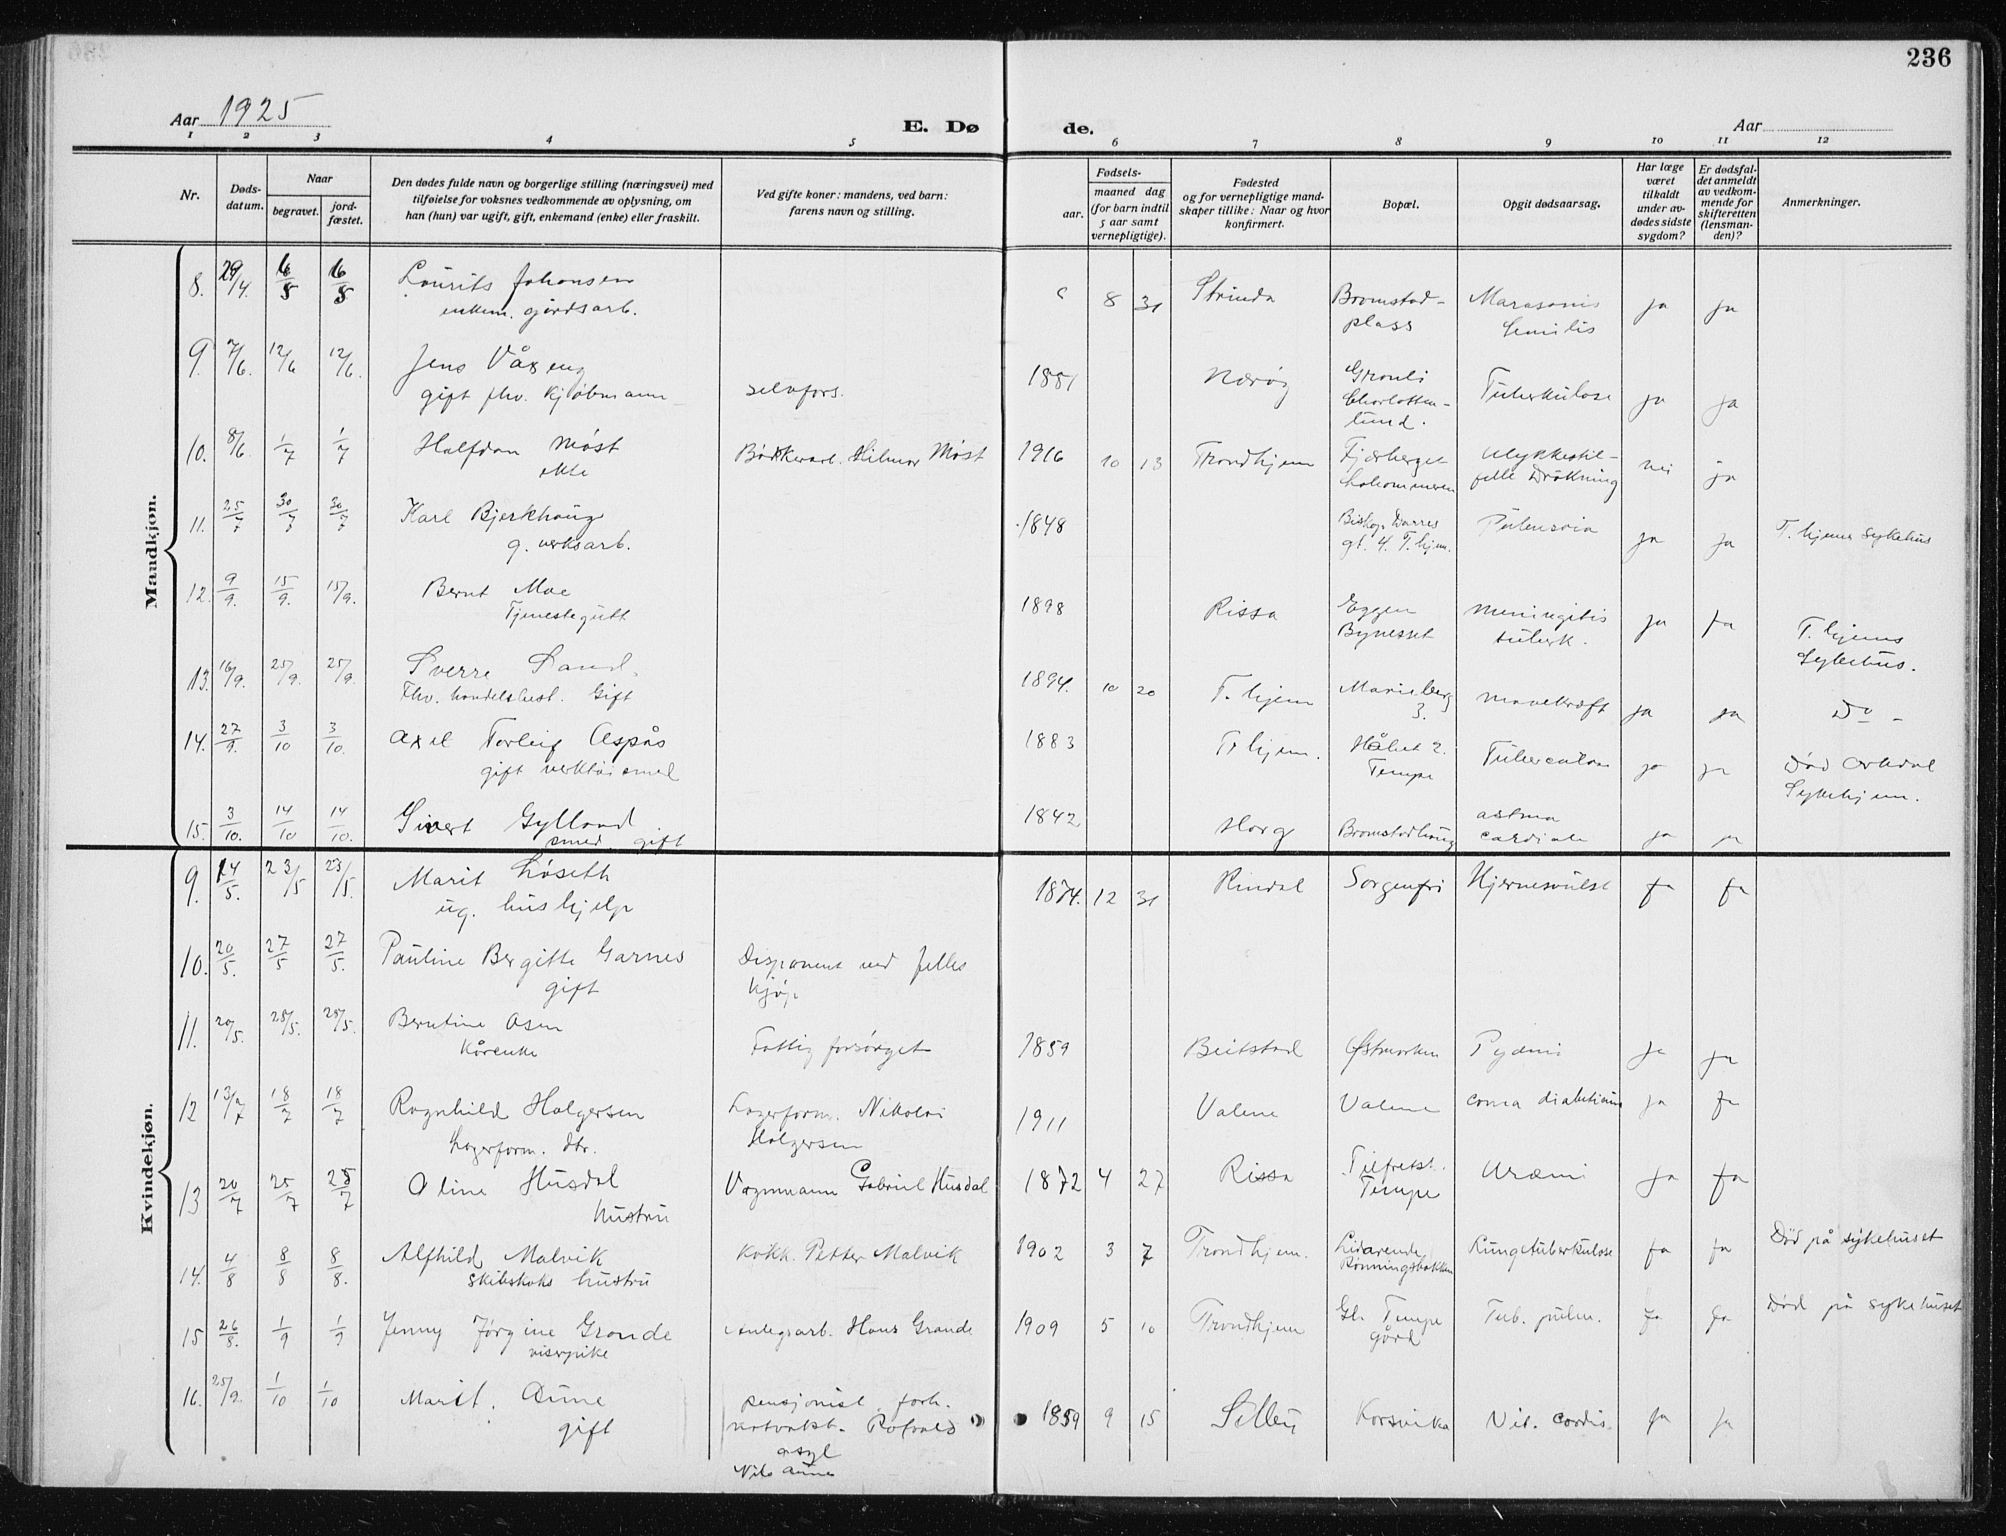 236
Aar 1925
E. Dø
de.
Aar
1 2 3 4 5 6 7 8 9 10 11 12
Nr.
Døds-
datum.
Naar
begravet.
jord-
fæstet.
Den dødes fulde navn og borgerlige stilling (næringsvei) med
tilføielse for voksnes vedkommende av oplysning, om
han (hun) var ugift, gift, enkemand (enke) eller fraskilt.
Ved gifte koner: mandens, ved barn:
farens navn og stilling.
Fødsels-
aar.
maaned dag
(for barn indtil
5 aar samt
vernepligtige).
Fødested
og for vernepligtige mand-
skaper tillike: Naar og hvor
konfirmert.
Bopæl.
Opgit dødsaarsag.
Har læge
været
tilkaldt
under av-
dødes sidste
sygdom?
Er dødsfal-
det anmeldt
av vedkom-
mende for
skifteretten
(lensman-
den)?
Anmerkninger.
Mandkjøn.
8. 29/4. 6/5 6/5 Laurits Johansen 8 31 Strinda Bromstad- ja ja
enkem. gårdsarb. plass Senilis
9. 7/6. 12/6 12/6. Jens Våxeng 1881 Nærøy Gronli Tuberkulose ja ja
gift fhv. Kjøbmann selvfors. Charlotten-
lund.
10. 8/6. 1/7 1/7 Halfdan Møst Bødkerarb. Hilmar Møst 1916 10 13 Trondhjem Fjærberget Ulykkestil- nei ja
ekte Ladehammeren felle Drukning
11. 25/7 30/7 30/7 Karl Bjerkhaug 1848 Biskop Darres ja ja T.hjems Sykehus
g. verksarb. gt. 4. T.hjem.
12. 9/9. 15/9. 15/9. Bernt Moe 1898 Rissa Eggen meningitis ja ja T.hjems
Tjenestegutt Bynesset tuberk. Sykehus.
13. 16/9. 25/9. 25/9. Sverre Sand 1894. 10 20 T.hjem Marieberg mavekræft ja ja Do -
Fhv. handelsbest. Gift 3.
14. 27/9. 3/10 3/10. Axel Torleif Aspås 1883 Trhjem. Hålet 2. Tuberculose ja ja Død Orkdal
gift verktøismed Tempe Sykehjem.
15. 3/10. 14/10 14/10. Sivert Gylland 1842 Horg Bromstadhaug astma ja ja
smed gift cardiale
Kvindekjøn.
9. 14/5. 23/5 23/5. Marit Løseth 1874. 12 31 Rindal Sorgenfri Hjernesvulst ja ja
ug. hushjelp
10. 20/5. 27/5 27/5. Pauline Bergitte Garnes Disponent ved felles
gift kjøp
11. 20/5. 25/5. 25/5. Berntine Asen Fattig forsørget 1859 Beitstad Østmarken ja ja
Kårenke
12 13/7 18/7 18/7 Ragnhild Holgersen Lagerform. Nikolai 1911 Valene Valene coma diabeticum ja ja
Lagerform. dtr. Holgersen
13 20/7 25/7 25/7 Oline Husdal Vognmann Gabriel Husdal 1872 4 27 Rissa Tilfredst. Uræmi ja ja
hustru Tempe
14. 4/8 8/8 8/8. Alfhild Malvik kokk. Petter Malvik 1902 3 7 Trondhjem. Lidarende Lungetuberkulose ja ja Død på sykehuset
Skibskoks hustru Rønningsbakken
15 26/8. 1/9 1/9 Jenny Jørgine Grande Anlegsarb. Hans Grande 1909 5 10 Trondhjem Gl. Tempe Tub. pulm. ja ja Død på sykehuset
viserpike gård
16. 25/9. 1/10 1/10 Marit Aune pensjonist, forh. 1859 9 15 Selbu Korsvika Vit. cordis. ja ja
gift Rotvold
asyl
Nils Aune